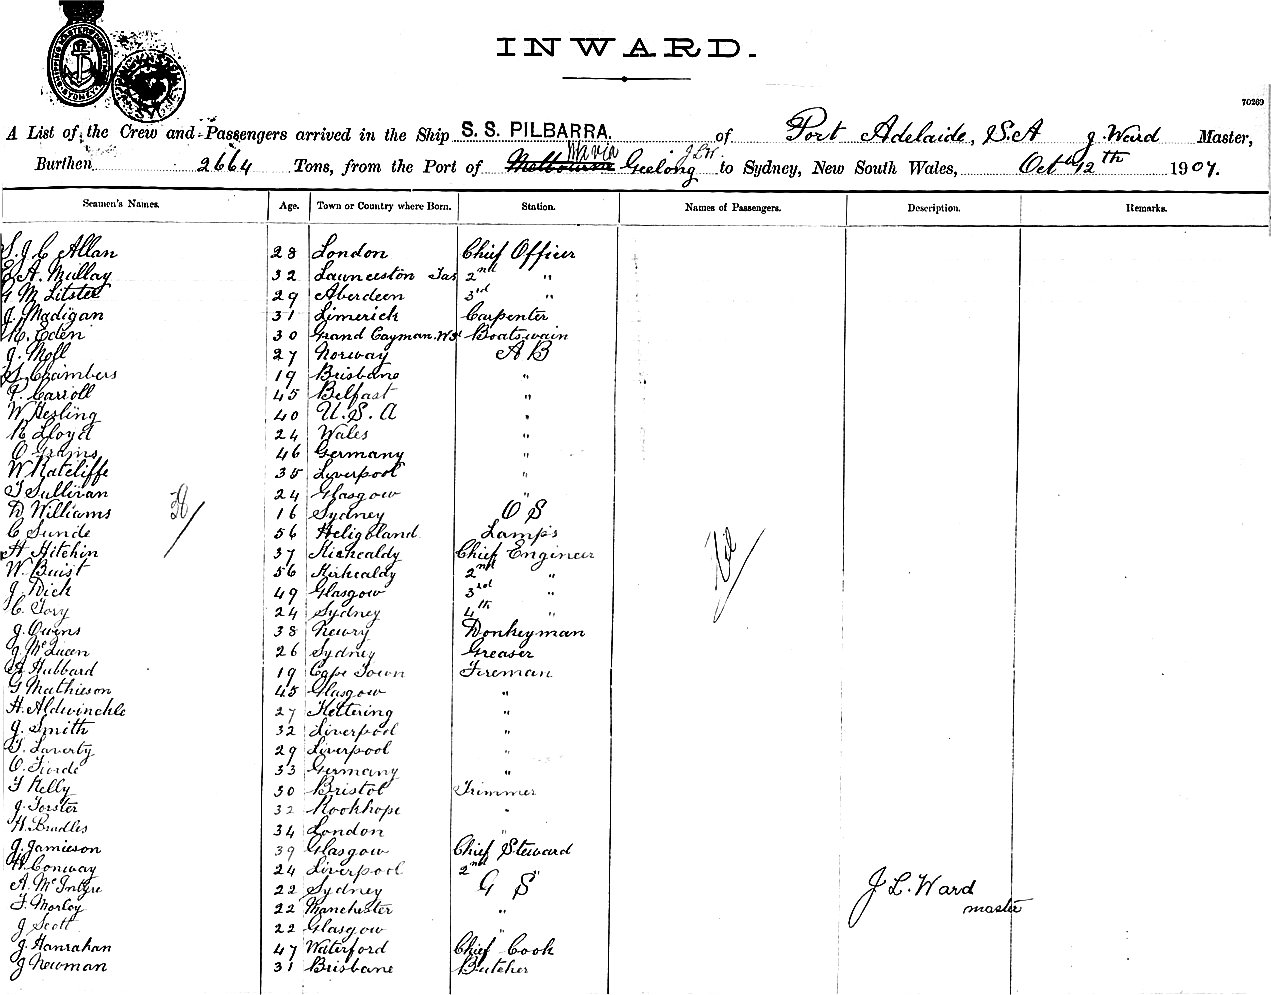 INWARD.
70289
A List of the Crew and Passengers arrived in the Ship S. S. PILBARRA. of Port Adelaide, S.A J. Ward Master,
Burthen 2664 Tons, from the Port of Melbourne via Geelong J L W. to Sydney, New South Wales, Oct 12th 1907.
Seamen's Names. Age. Town or Country where Born. Station. Names of Passengers. Description. Remarks.
S. J. C Allan 28 London Chief Officer
E. A. Mullay 32 Launceston Tas 2nd "
G M Litster 29 Aberdeen 3rd "
J. Madigan 31 Limerick Carpenter
R. Eden 30 Grand Cayman. W.I Boatswain
J. Moll 27 Norway A B
Chambers 19 Brisbane "
P. Carroll 45 Belfast "
W Hesling 40 U. S. A "
R Lloyd 24 Wales "
O Grams 46 Germany "
W Ratcliffe 35 Liverpool "
T Sullivan 24 Glasgow "
D Williams 16 Sydney O S
C Sunde 56 Heligoland Lamps
H Hitchin 37 Kirkcaldy Chief Engineer
W. Buist 56 Kirkcaldy 2nd "
J. Dick 49 Glasgow 3rd "
C. Tory 24 Sydney 4th "
J. Owens 38 Newry Donkeyman
J. McLucen 26 Sydney Greaser
A Hubbard 19 Cape Town Fireman
G Mathieson 45 Glasgow "
H. Aldwinckle 27 Kettering "
J. Smith 32 Liverpool "
T. Laverty 29 Liverpool "
O. 33 Germany "
T Kelly 30 Bristol Trimmer
J. Forster 32 Rookhope "
H. Bradles 34 London "
J. Jamieson 39 Glasgow Chief Steward
H. Conway 24 Liverpool 2nd "
A. McIntyre 22 Sydney G S
F. Morley 22 Manchester "
J Scott 22 Glasgow "
J. Hanrahan 47 Waterford Chief Cook
J Newman 31 Brisbane Butcher
38
Nil
J L. Ward
master